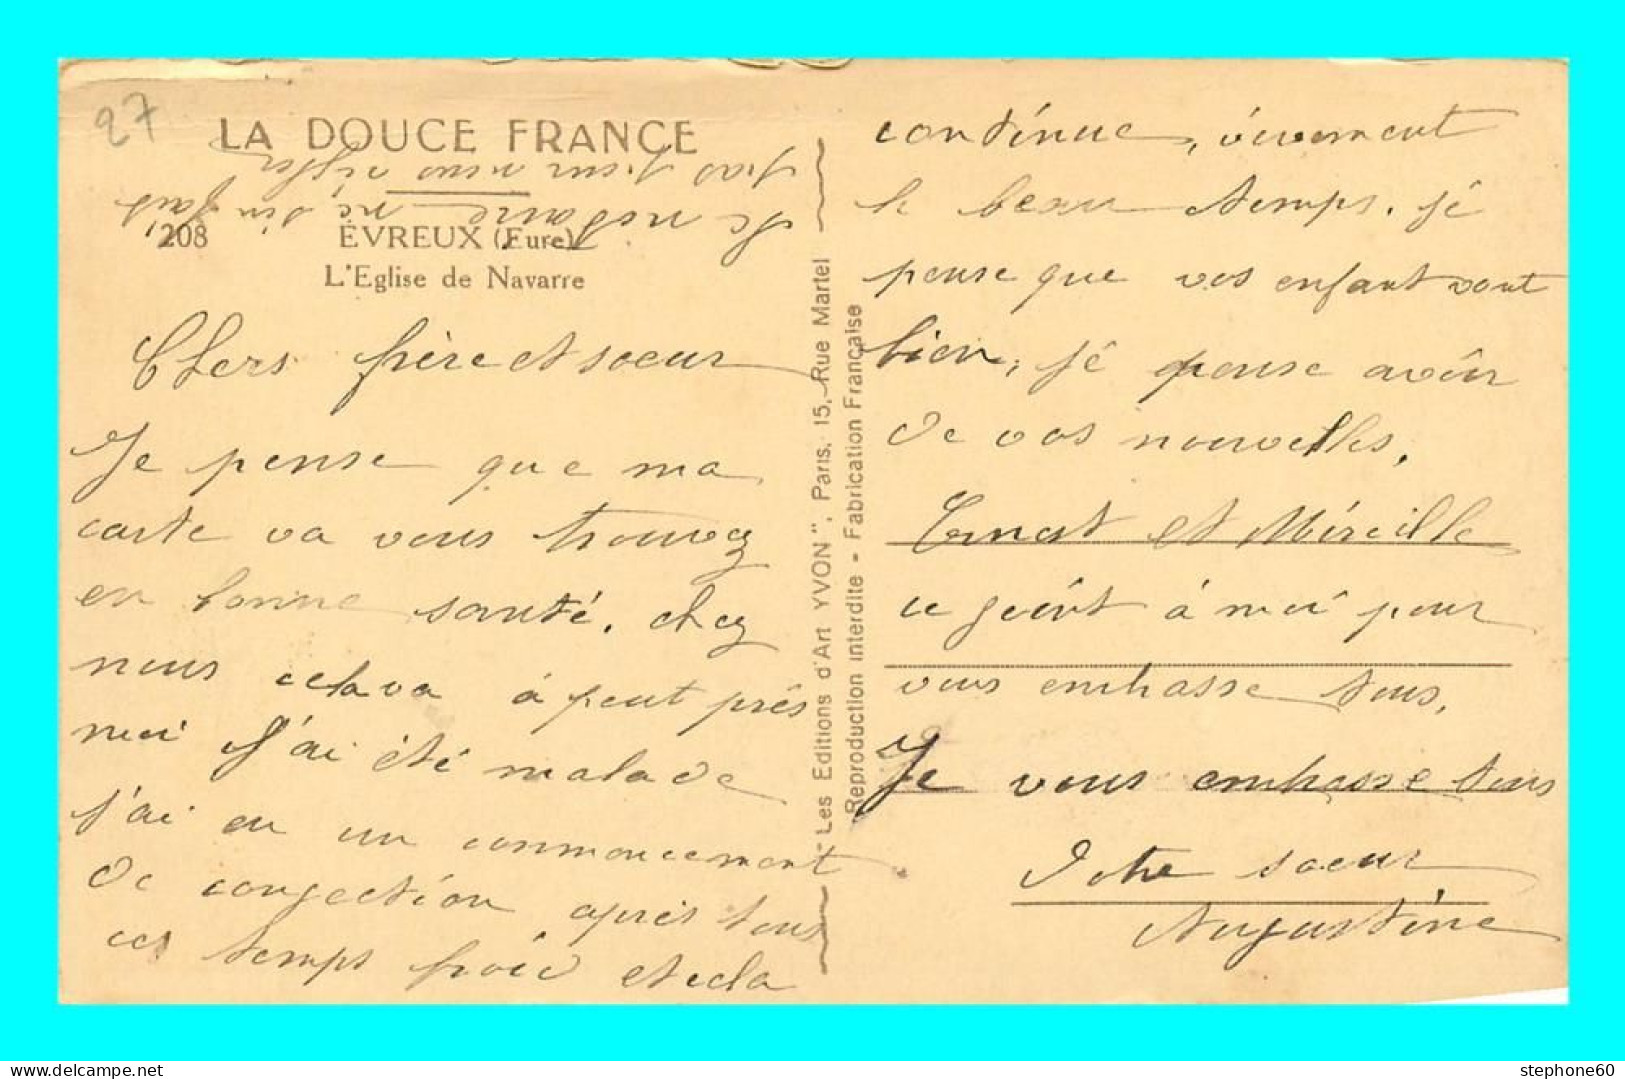 27
LA DOUCE FRANCE
208 ÉVREUX (Eure)
L'Eglise de Navarre
Chers frère et soeur
Je pense que ma
carte va vous trouvez
en bonne santé. chez
nous cela va à peut près
moi J'ai été malade
j'ai eu un commencement
de congection après tous
ces temps froid et cela
continue, vivement
le beau temps. je
pense que vos enfant vont
bien, je pense avoir
de vos nouvelles,
Ernest et Mireille
ce joint à moi pour
vous embrasse tous,
Je vous embrasse tous
Votre soeur
Augustine
le notaire ne, s'en fait
pas pour nous régler
"Les Editions d'Art YVON", Paris, 15, Rue Martel
Reproduction interdite - Fabrication Française
stephone60